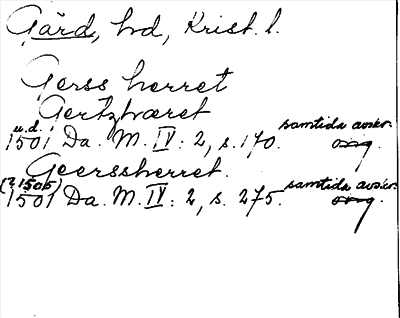 Gärd, hd, Krist. l.
Gerss herret
Gertzhæret
u.d. samtida avskr.
1501 Da. M. IV: 2, s. 170. orig.
Geerssherret.
(?1505) samtida avskr.
1501 Da. M. IV: 2, s. 275. orig.